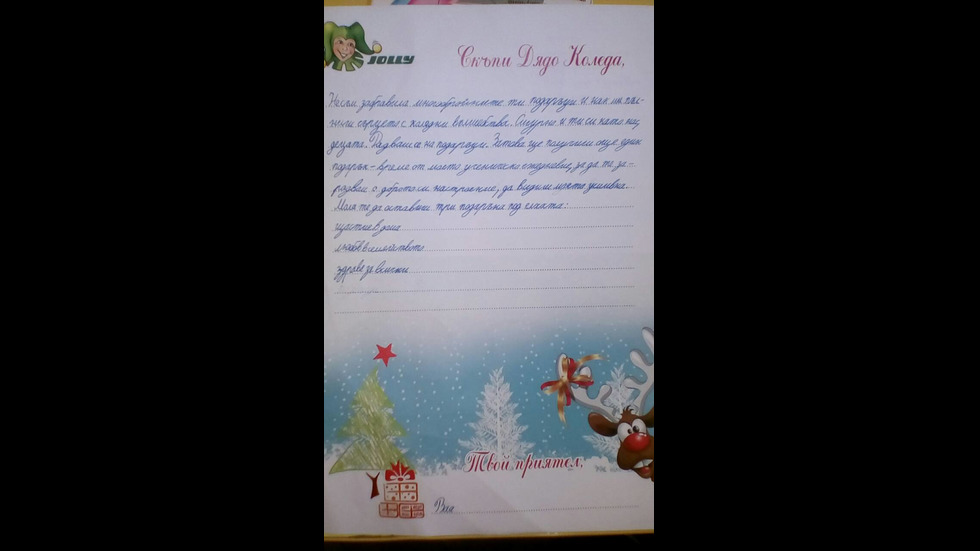 JOLLY
Скъпи Дядо Коледа,
Не съм забравила многобройните ти подаръци и как ми пъл-
неш сърцето с коледни вълшебства. Сигурно и ти си като нас,
децата. Радваш се на подаръци. Затова ще получиш още един
подарък - време от моето ученическо ежедневие, за да те за-
радвам с доброто ми настроение, да видиш моята усмивка...
Моля те да оставиш три подаръка под елхата:
щастие в дома
любов в семейството
здраве за всички
Твой приятел: